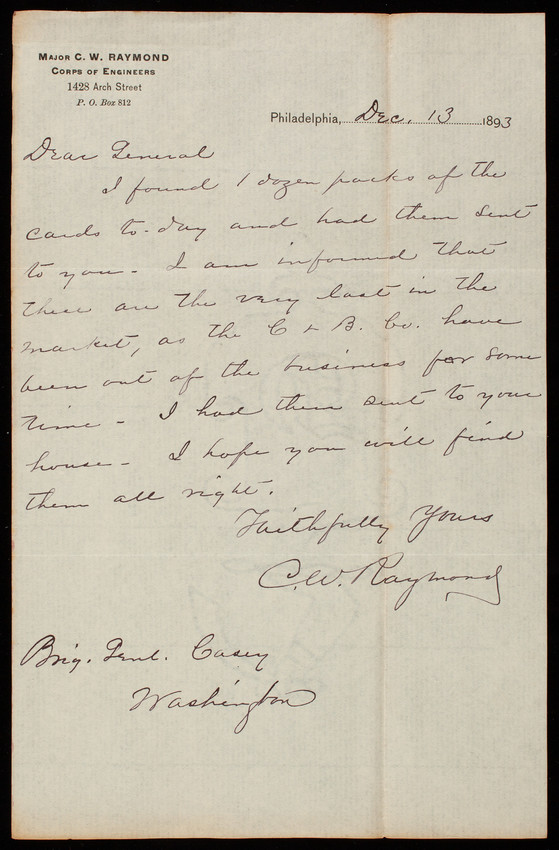 Major C. W. Raymond
Corps of Engineers
1428 Arch Street
P. O. Box 812
Philadelphia, Dec. 13 1893
Dear General
I found 1 dozen packs of the
cards to-day and had them sent
to you - I am informed that
these are the very last in the
market, as the C & B. Co. have
been out of the business for some
time - I had them sent to your
house - I hope you will find
them all right.
Faithfully Yours
C. W. Raymond
Brig. Genl. Casey
Washington